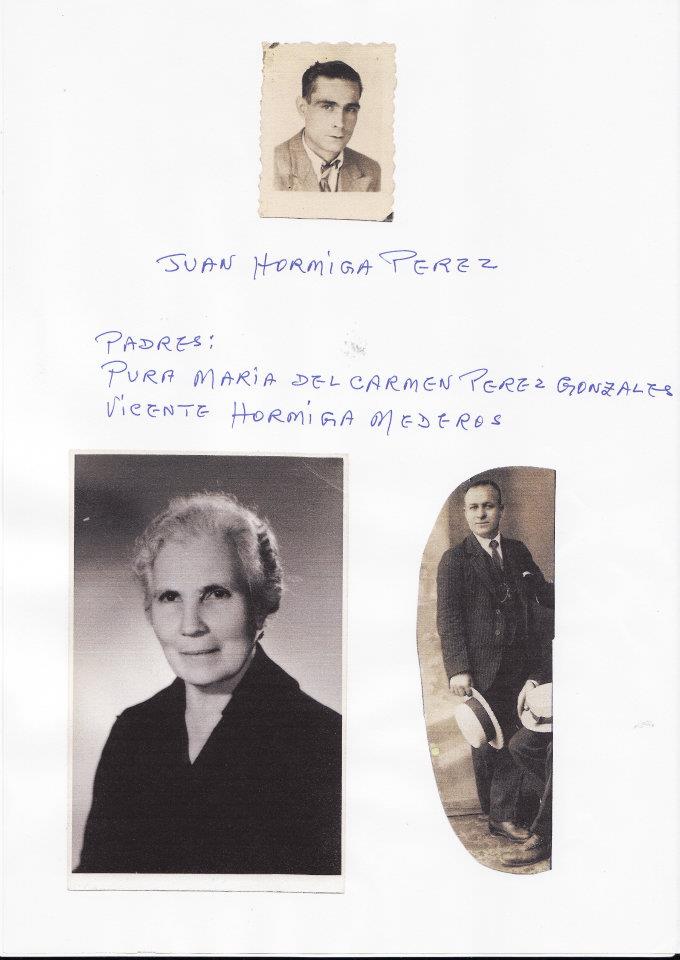 JUAN HORMIGA PEREZ
PADRES:
PURA MARIA DEL CARMEN PEREZ GONZALES
VICENTE HORMIGA MEDEROS